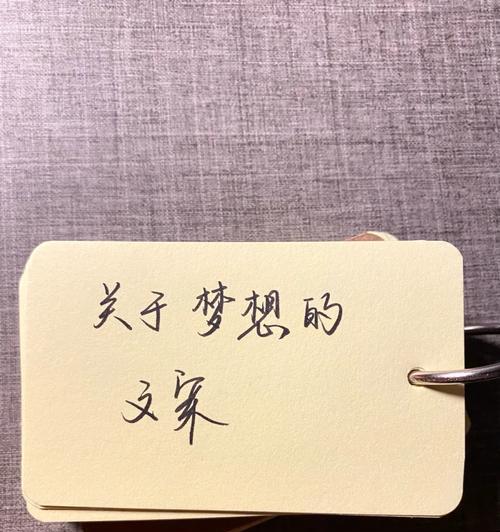 关于梦想的
文案